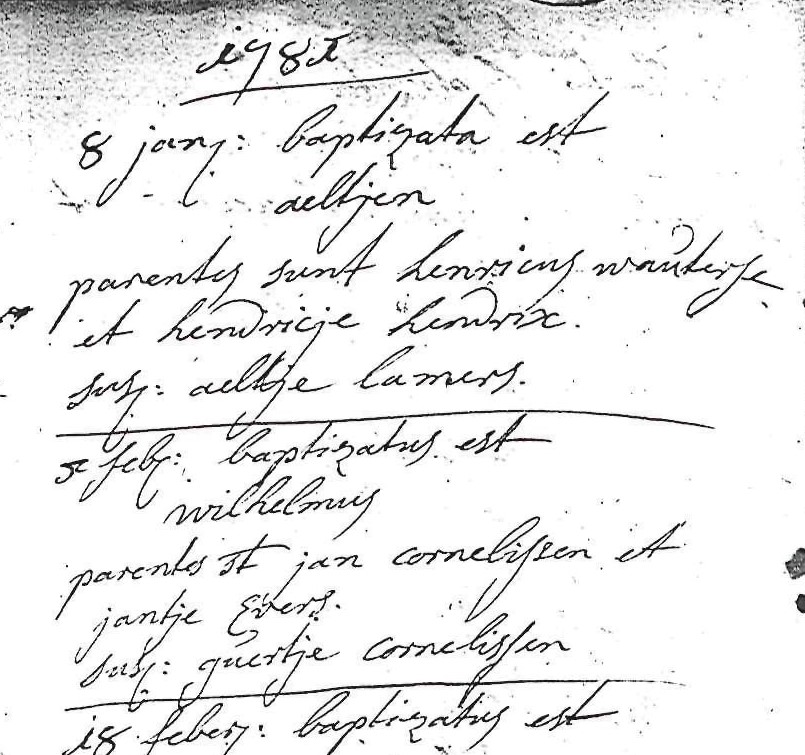 1781
8 janz: baptizata est
aeltjen
parentes sunt henricus wauterse
et hendricje hendrix.
sus: aeltje lamers.
5 feb: baptizatus est
wilhelmus
parentes st jan cornelissen et
jantje Evers.
sus: guertje cornelissen
18 feber: baptizatus est